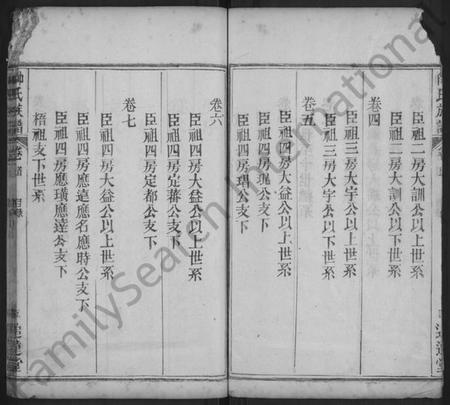 氏族譜
臣祖二房大訓公以上世系
臣祖二房大訓公以下世系
卷四
臣祖三房大宇公以上世系
臣祖三房大宇公以下世系
卷五
臣祖四房大益公以上世系
臣祖四房瑰公支下
臣祖四房瑁公支下
卷六
臣祖四房大益公以上世系
臣祖四房定蔣公支下
臣祖四房定都公支下
卷七
臣祖四房大益公以上世系
臣祖四房應遴應名應時公支下
臣祖四房應璜應達公支下
梧祖支下世系
氏族譜
卷首
目錄
堂
FamilySearch International